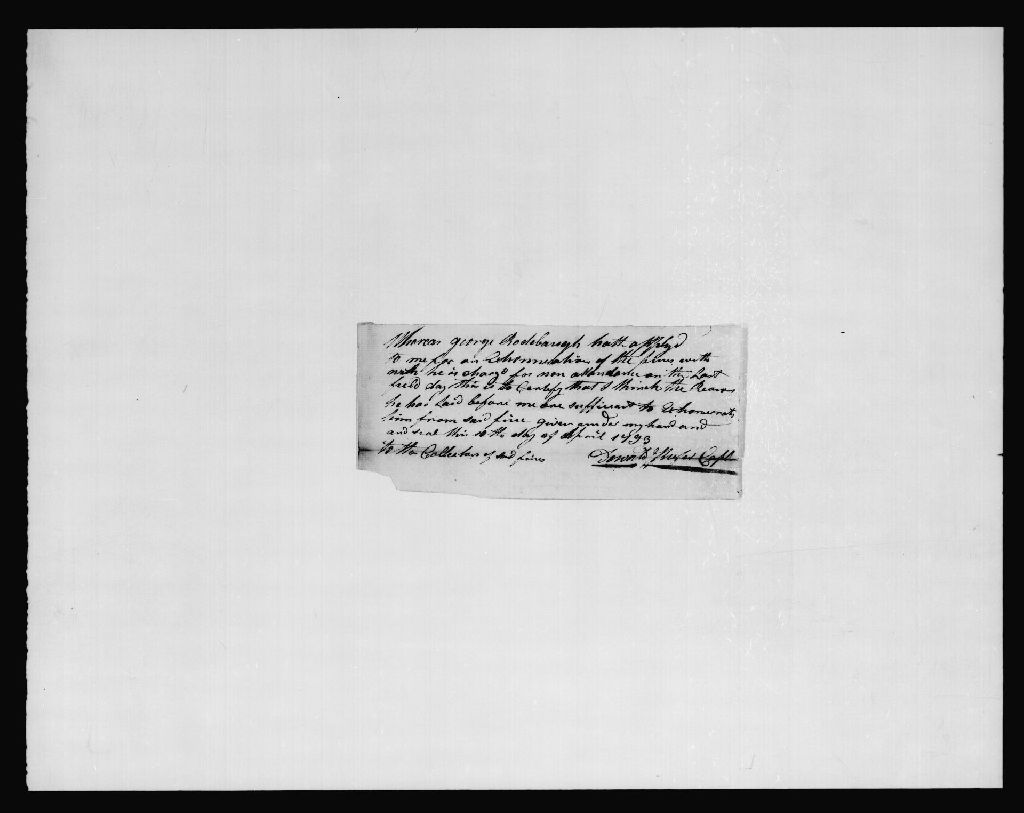 Whereas george Rodebaugh hath applyd
to me for an Exhonneration of the fines with
with he is charg'd for non attendance on the Last
field day this is to Certify that I think the Reasons
he has laid before me are sufficient to Exhonerate
him from said fine given under my hand and
and seal this 10th day of April 1793
to the Collector of sd fines Capt